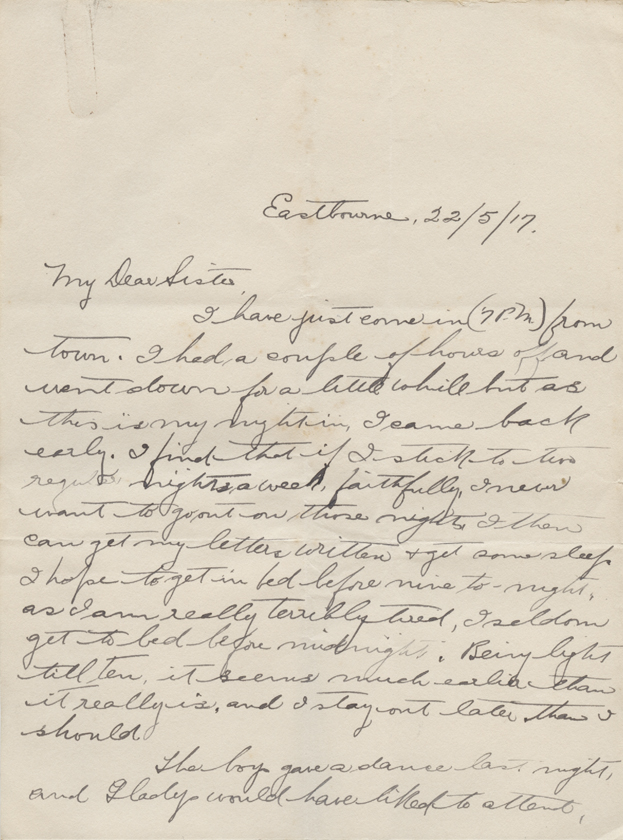 Eastbourne, 22/5/17.
My Dear Sister,
I have just come in (7 P.M.) from
town. I had a couple of hours off and
went down for a little while but as
this is my night in, I came back
early. I find that if I stick to two
regular nights a week, faithfully, I never
want to go out on those nights. I then
can get my letters written & get some sleep
I hope to get in bed before nine to-night,
as I am really terribly tired, I seldom
get to bed before midnight. Being light
till ten, it seems much earlier than
it really is, and I stay out later than I
should
The boys gave a dance last night,
and Gladys would have liked to attend,